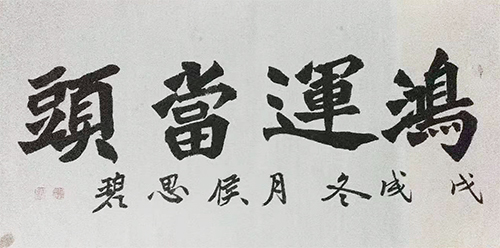 鴻運當頭
戊戌冬月侯思碧